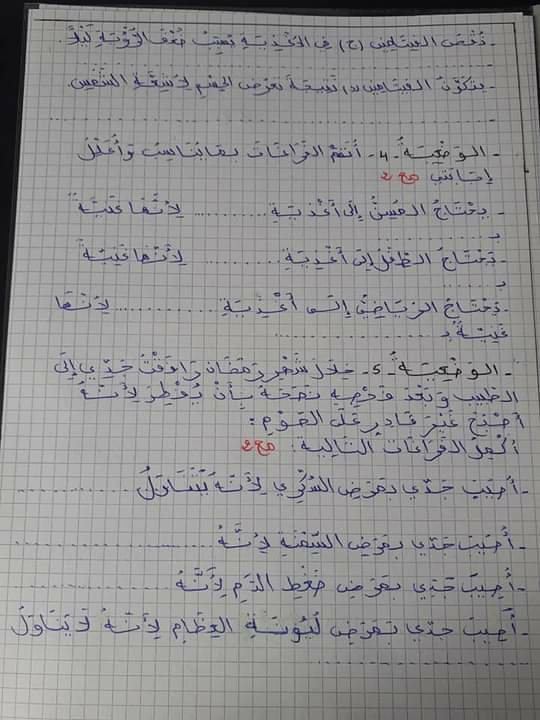 - نُقْصُ الفيتامين (ج) في الأغذية يُسبّبُ ضُعْفَ الرُّؤْيَةِ لَيْلاً.
..............................
- يتكوّنُ الفيتامين د، نتيجة تعرّض الجسم لِأشعّةِ الشّمْسِ.
..............................
- الوَضْعِيّةُ - 4 - أُتَمِّمُ الفراغات بما يناسب وأُعَلِّلُ
إجابتي مع 2
- يَحْتَاجُ المُسِنُّ إلى أغذية ............ لأنّها غنيّةٌ
بـ ..............
- يَحْتَاجُ الطّفْلُ إلى أغذية ............ لأنّها غنيّةٌ
بـ ..............
- يَحْتَاجُ الرّياضيُّ إلى أغذية ............ لأنها
غنيّةٌ بـ ..............
- الوَضْعِيّةُ - 5 - خلال شهر رمضان رافقتُ جدّي إلى
الطبيب وبعد فحصه نصحهُ بأنْ يُفْطِرَ لأنّهُ
أصبح غير قادر على الصّوم:
أُكْمِلُ الفراغات التالية: مع 2
- أُصِيبَ جَدّي بمرض السُّكّري لأنّه يَتَنَاوَلُ ............
..............................
- أُصِيبَ جَدّي بمرض السِّمْنَةِ لأنّهُ ............
- أُصِيبَ جَدّي بمرض ضَغْطِ الدّمِ لأنّهُ ............
- أُصِيبَ جدّي بمرض لُيُونَةِ العِظَامِ لأنّهُ لا يَتَنَاوَلُ
..............